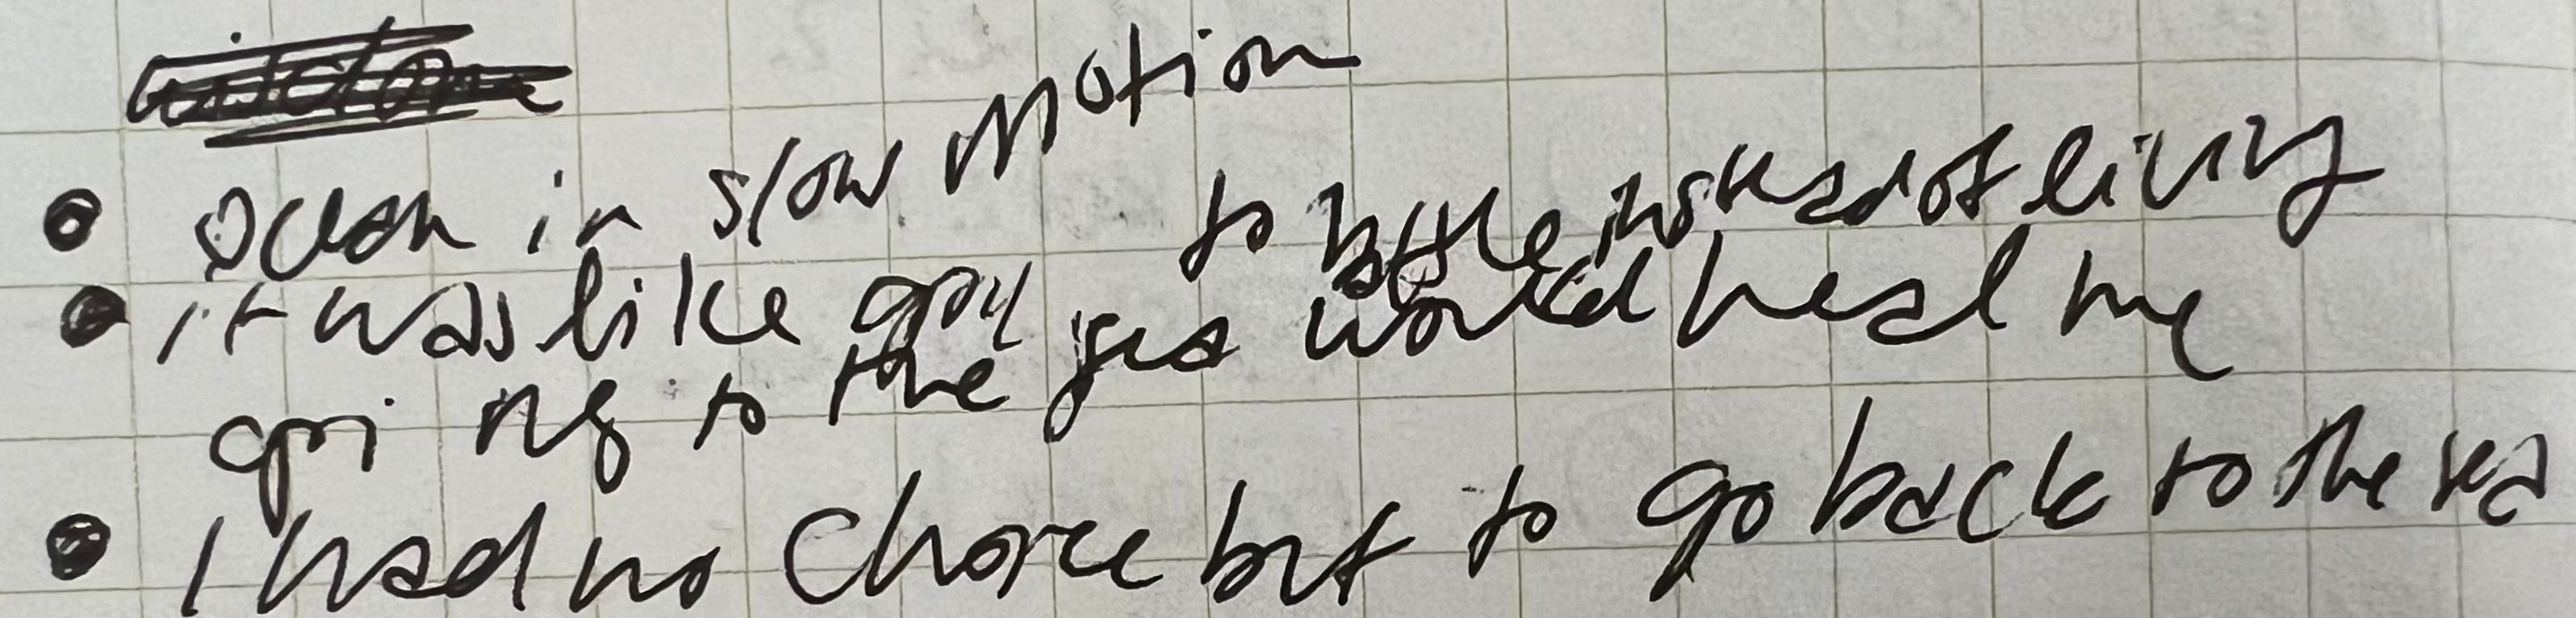 ocean in slow motion
to battle instead of living
it was like
going to the sea would heal me
I had no choice but to go back to the sea